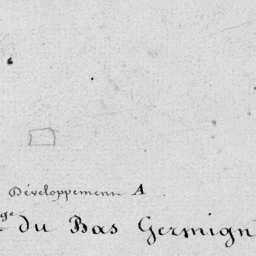 Développement A
ge du Bas Germign